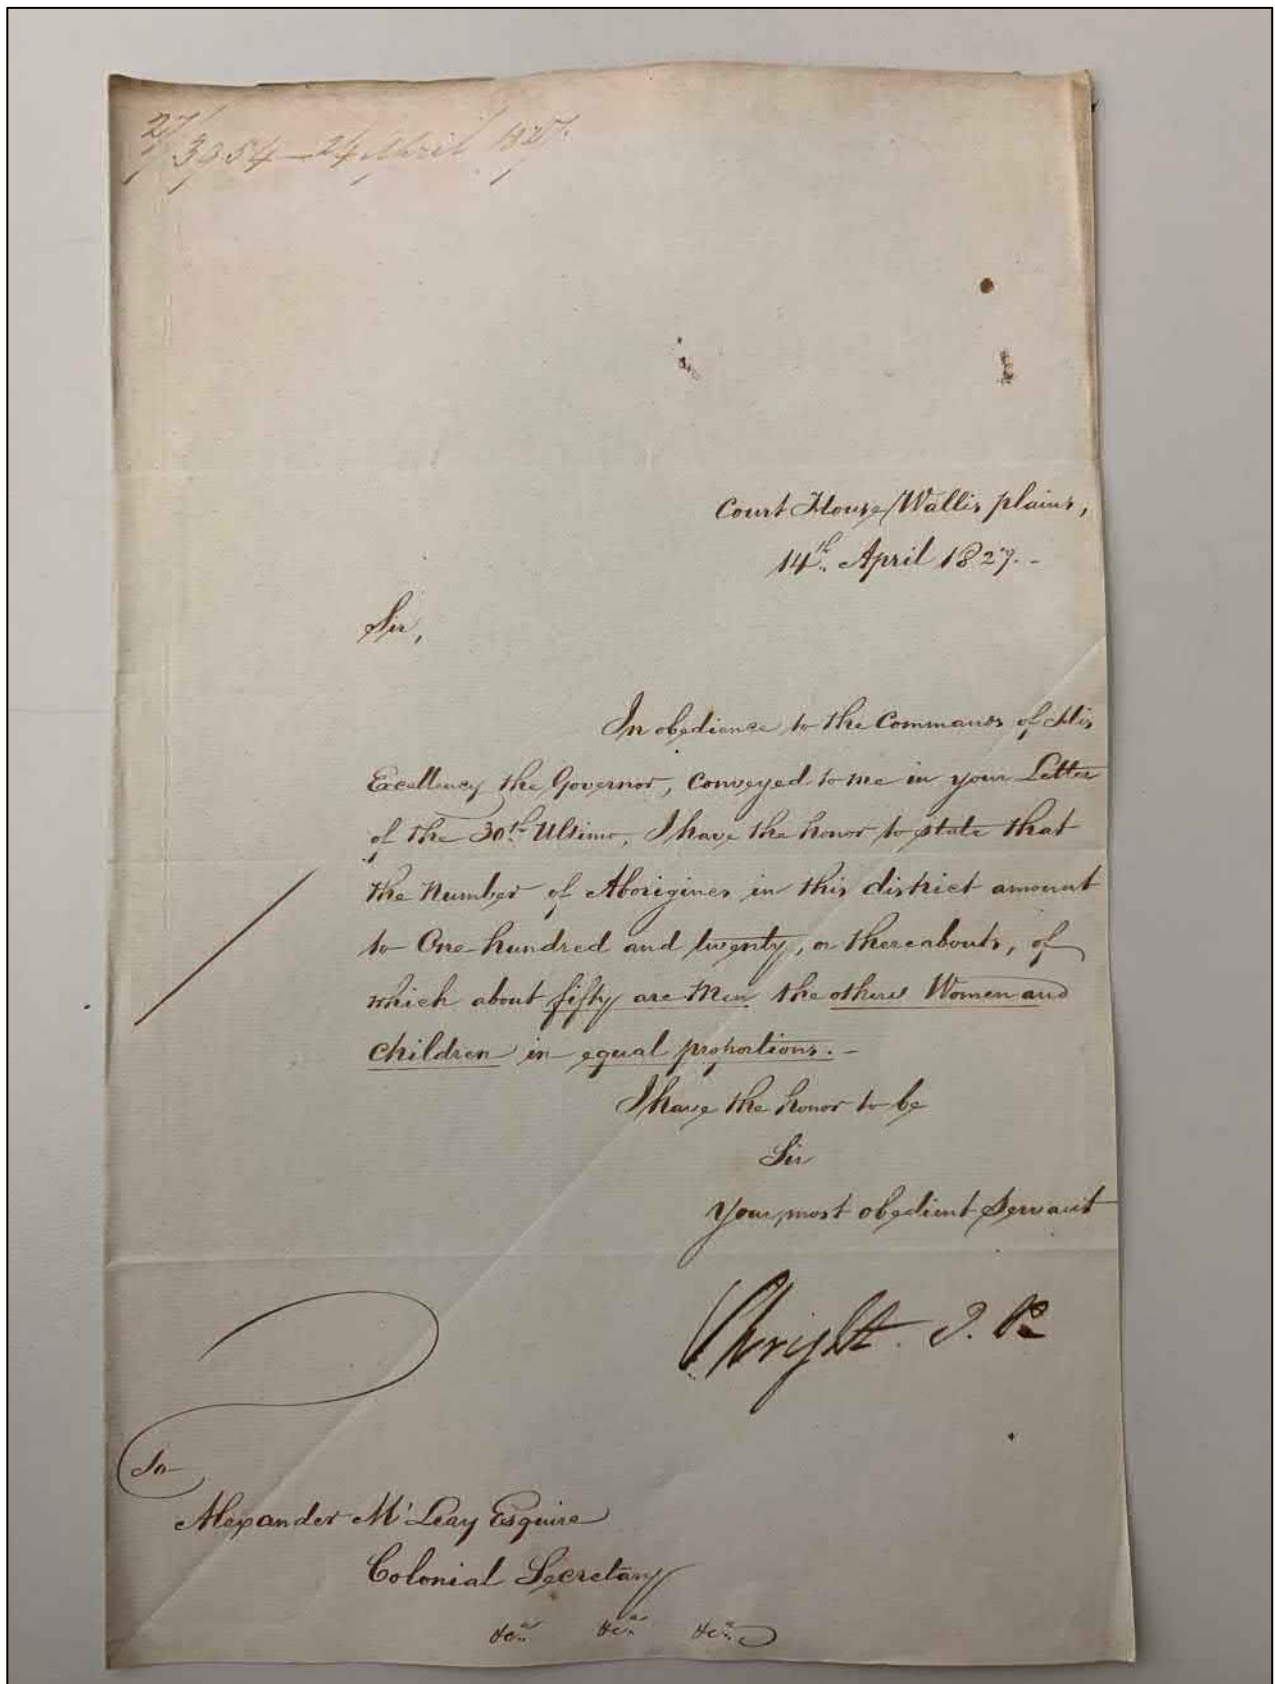 27/3954 — 24 April 1827.
Court House/Wallis plains,
14th. April 1827. -
Sir,
In obedience to the Commands of His
Excellency the Governor, conveyed to me in your Letter
of the 30th. Ultimo, I have the honor to state that
the Number of Aborigines in this district amount
to One hundred and twenty, or thereabouts, of
which about fifty are Men the others Women and
children in equal proportions. -
I have the honor to be
Sir
your most obedient Servant
Wright. J. P.
To
Alexander M'Leay Esquire
Colonial Secretary
&ca. &ca. &ca.